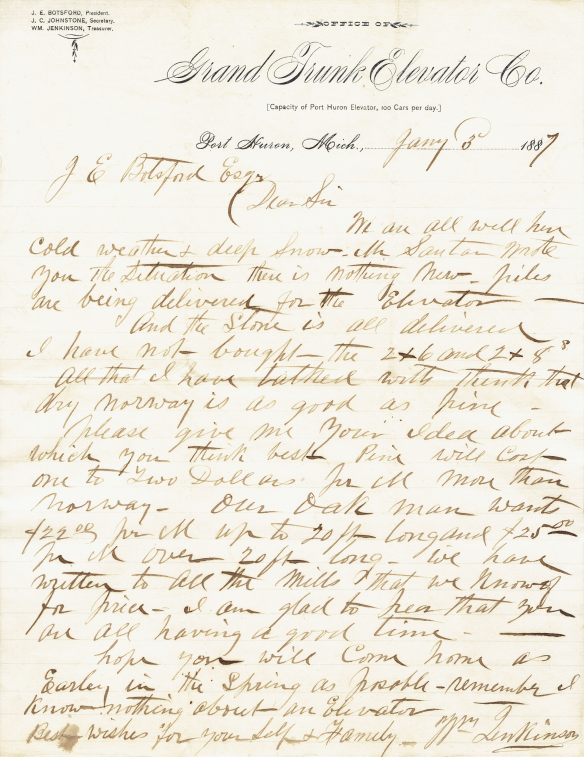 J. E. BOTSFORD, President.
J. C. JOHNSTONE, Secretary.
WM. JENKINSON, Treasurer.
OFFICE OF
Grand Trunk Elevator Co.
[Capacity of Port Huron Elevator, 100 Cars per day.]
Port Huron, Mich., Jany 3d 1887
J E Botsford Esqr
Dear Sir
We are all well here
Cold weather & deep Snow - Mr Santan wrote
you the Situation there is nothing New - piles
are being delivered for the Elevator —
And the Stone is all delivered
I have not bought the 2x6 and 2x8s
All that I have talked with think that
dry norway is as good as pine -
please give me your Idea about
which you think best Pine will Cost
one to Two Dollars per M more than
norway - Our Oak man wants
$22.00 per M up to 20 ft long and $25.00
per M over 20 ft long we have
written to all the Mills that we Know of
for price - I am glad to hear that you
are all having a good time - —
hope you will Come home as
Earley in the Spring as posable - remember I
Know nothing about an Elevator
Best wishes for your Self & Family - Wm Jenkinson